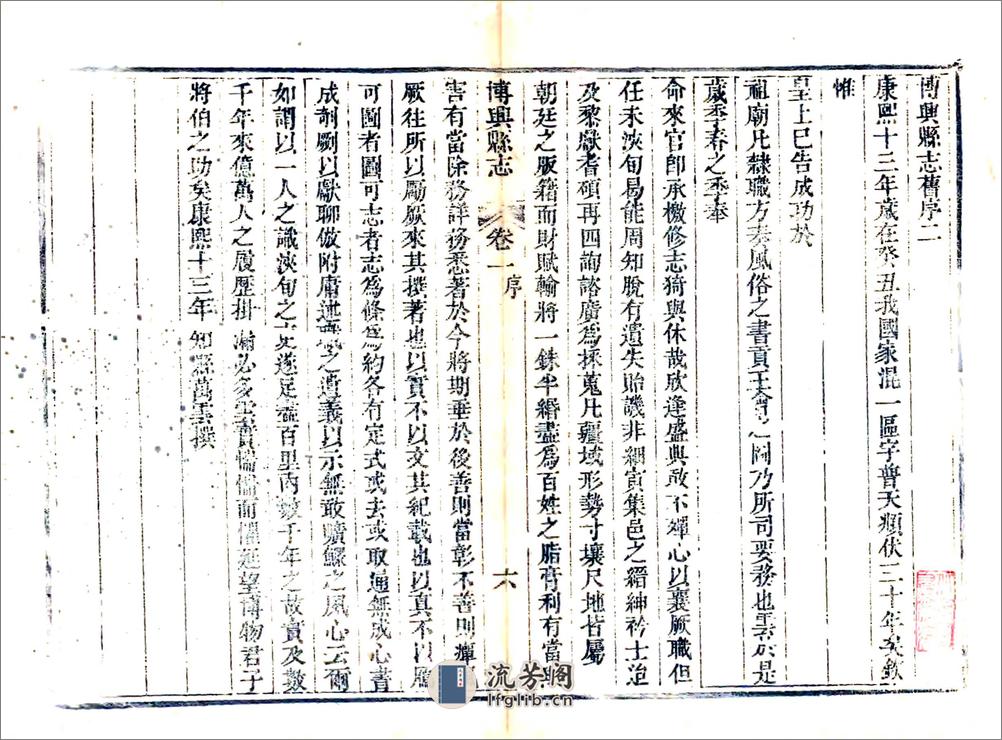 博興縣志舊序二
康熙十三年歲在癸丑我國家混一區宇普天頫伏三十年矣欽
惟
皇上已告成功於
祖廟凡隸職方奏風俗之書貢王會之圖乃所司要務也雲於是
歲季春之季奉
命來官卽承檄修志猗與休哉欣逢盛典敢不殫心以襄厥職但
任未浹旬易能周知脫有遺失貽譏非細寅集邑之縉紳衿士洎
及黎獻耆碩再四詢諮廣爲採蒐凡疆域形勢寸壤尺地皆屬
朝廷之版籍而財賦輸將一銖半緡盡爲百姓之脂膏利有當興
博興縣志 卷一 序 六
害有當除務詳務悉著於今將期垂於後善則當彰不善則癉
厥往所以勵厥來其撰著也以實不以文其紀載也以真不以贋
可圖者圖可志者志爲條爲約各有定式或去或取通無成心書
成剞劂以獻聊倣附庸述職之遺義以示無敢曠鰥之夙心云爾
如謂以一人之識浹旬之文遂足盡百里內數千年之故實及數
千年來億萬人之履歷掛漏必多雲實惴惴而懼延望博物君子
將伯之助矣康熙十三年 知縣萬雲撰
流芳閣
lfglib.cn